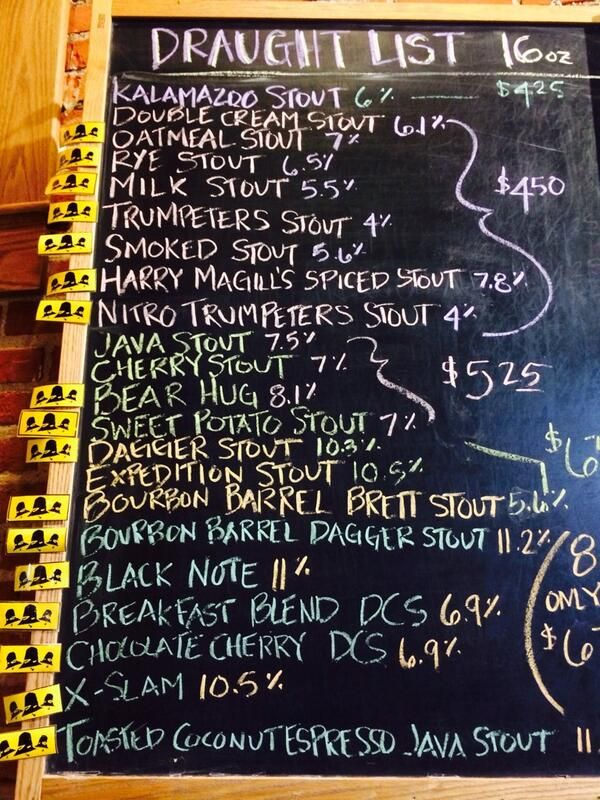 DRAUGHT LIST 16oz
KALAMAZOO STOUT 6% $4.25
DOUBLE CREAM STOUT 6.1%
OATMEAL STOUT 7%
RYE STOUT 6.5%
MILK STOUT 5.5% $4.50
TRUMPETERS STOUT 4%
SMOKED STOUT 5.6%
HARRY MAGILL'S SPICED STOUT 7.8%
NITRO TRUMPETERS STOUT 4%
JAVA STOUT 7.5%
CHERRY STOUT 7% $5.25
BEAR HUG 8.1%
SWEET POTATO STOUT 7%
DAGGER STOUT 10.3% $6
EXPEDITION STOUT 10.5%
BOURBON BARREL BRETT STOUT 5.6%
BOURBON BARREL DAGGER STOUT 11.2% 8
BLACK NOTE 11% ONLY
BREAKFAST BLEND DCS 6.9% $6
CHOCOLATE CHERRY DCS 6.9%
X-SLAM 10.5%
TOASTED COCONUT ESPRESSO JAVA STOUT 11.